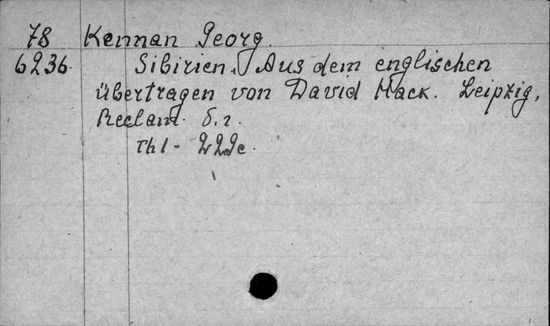 78 Kennan Georg.
6236 Sibirien. Aus dem englischen
übertragen von David Hack. Leipzig,
Reclam. б.г.
Th 1 - 229с.